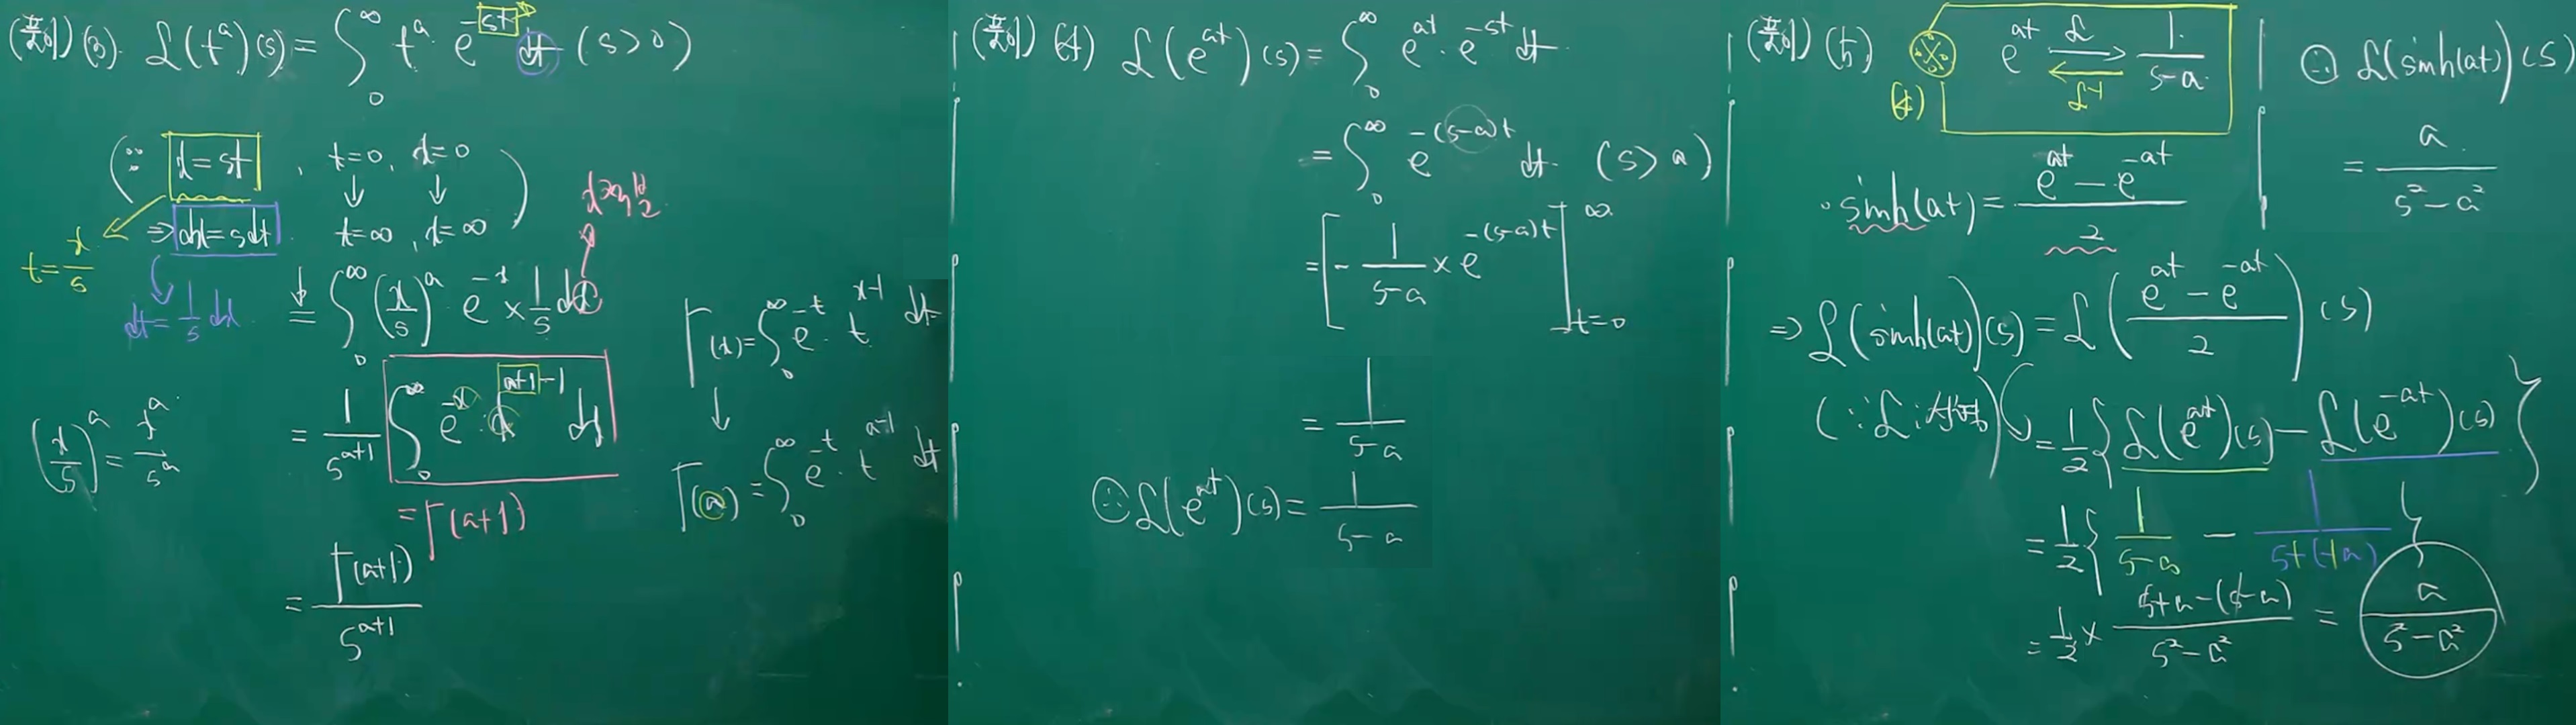 (풀이) (3). ℒ(t^a)(s) = ∫₀^∞ t^a · e^{-st} dt (s>0)
(∵ x=st, t=0, x=0
↓ ↓
⇒ dx=sdt t=∞, x=∞)
t = x/s
dt = 1/s dx
= ∫₀^∞ (x/s)^a · e^{-x} × 1/s dx
(x/s)^a = x^a/s^a
= 1/s^{a+1} ∫₀^∞ e^{-x} · x^{a+1-1} dx
= Γ(a+1)
= Γ(a+1)/s^{a+1}
Γ(x) = ∫₀^∞ e^{-t} · t^{x-1} dt
↓
Γ(a) = ∫₀^∞ e^{-t} · t^{a-1} dt
(풀이) (4) ℒ(e^{at})(s) = ∫₀^∞ e^{at} · e^{-st} dt
= ∫₀^∞ e^{-(s-a)t} dt (s>a)
= [-1/(s-a) × e^{-(s-a)t}]_{t=0}^∞
= 1/(s-a)
∴ ℒ(e^{at})(s) = 1/(s-a)
(풀이) (5) ※ e^{at} ⇄ 1/(s-a)
ℒ
ℒ^{-1}
(4)
· sinh(at) = (e^{at} - e^{-at})/2
⇒ ℒ(sinh(at))(s) = ℒ((e^{at} - e^{-at})/2)(s)
(∵ ℒ: 선형) = 1/2 {ℒ(e^{at})(s) - ℒ(e^{-at})(s)}
= 1/2 {1/(s-a) - 1/(s+(+a))}
= 1/2 × (s+a-(s-a))/(s²-a²) = a/(s²-a²)
∴ ℒ(sinh(at))(s)
= a/(s²-a²)